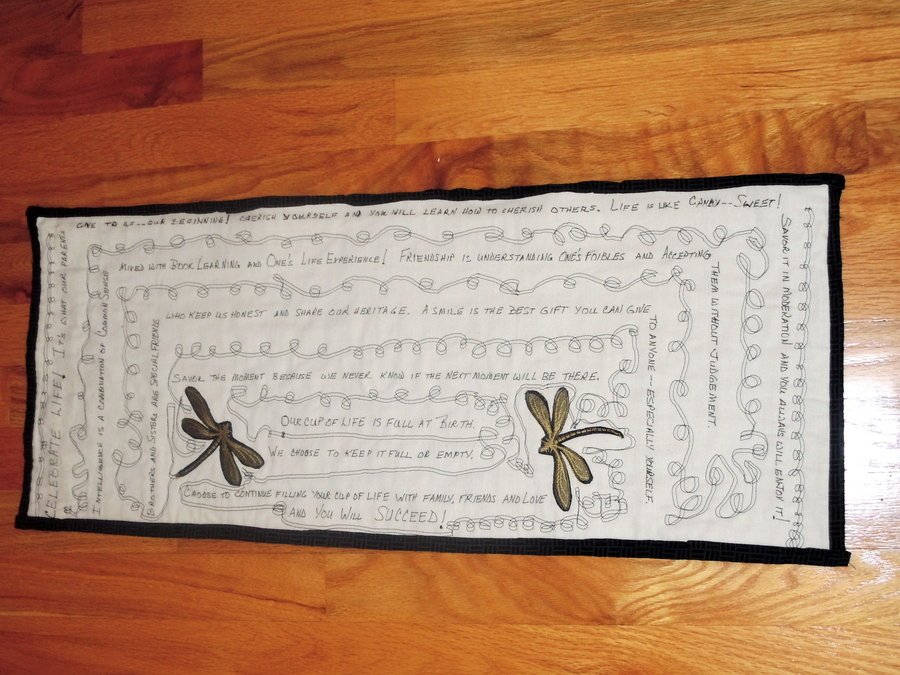 CELEBRATE LIFE! IT'S WHAT OUR PARENTS
GAVE TO US...OUR BEGINNING! CHERISH YOURSELF AND YOU WILL LEARN HOW TO CHERISH OTHERS. LIFE IS LIKE CANDY--SWEET!
SAVOR IT IN MODERATION AND YOU ALWAYS WILL ENJOY IT!
INTELLIGENCE IS A COMBINATION OF COMMON SENSE
MIXED WITH BOOK LEARNING AND ONE'S LIFE EXPERIENCE! FRIENDSHIP IS UNDERSTANDING ONE'S FOIBLES AND ACCEPTING
THEM WITHOUT JUDGEMENT.
BROTHERS AND SISTERS ARE SPECIAL FRIENDS
WHO KEEP US HONEST AND SHARE OUR HERITAGE. A SMILE IS THE BEST GIFT YOU CAN GIVE
TO ANYONE -- ESPECIALLY YOURSELF.
SAVOR THE MOMENT BECAUSE WE NEVER KNOW IF THE NEXT MOMENT WILL BE THERE.
OUR CUP OF LIFE IS FULL AT BIRTH.
WE CHOOSE TO KEEP IT FULL OR EMPTY.
CHOOSE TO CONTINUE FILLING YOUR CUP OF LIFE WITH FAMILY, FRIENDS AND LOVE
AND YOU WILL SUCCEED!